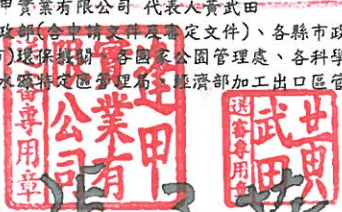 甲實業有限公司 代表人黃武田
政部(含申請文件及審定文件)、各縣市政
)環保機關、各國家公園管理處、各科學
水源特定區管理局、經濟部加工出口區管
蓬甲實業有限公司
送審專用章
黃武田
送審專用章